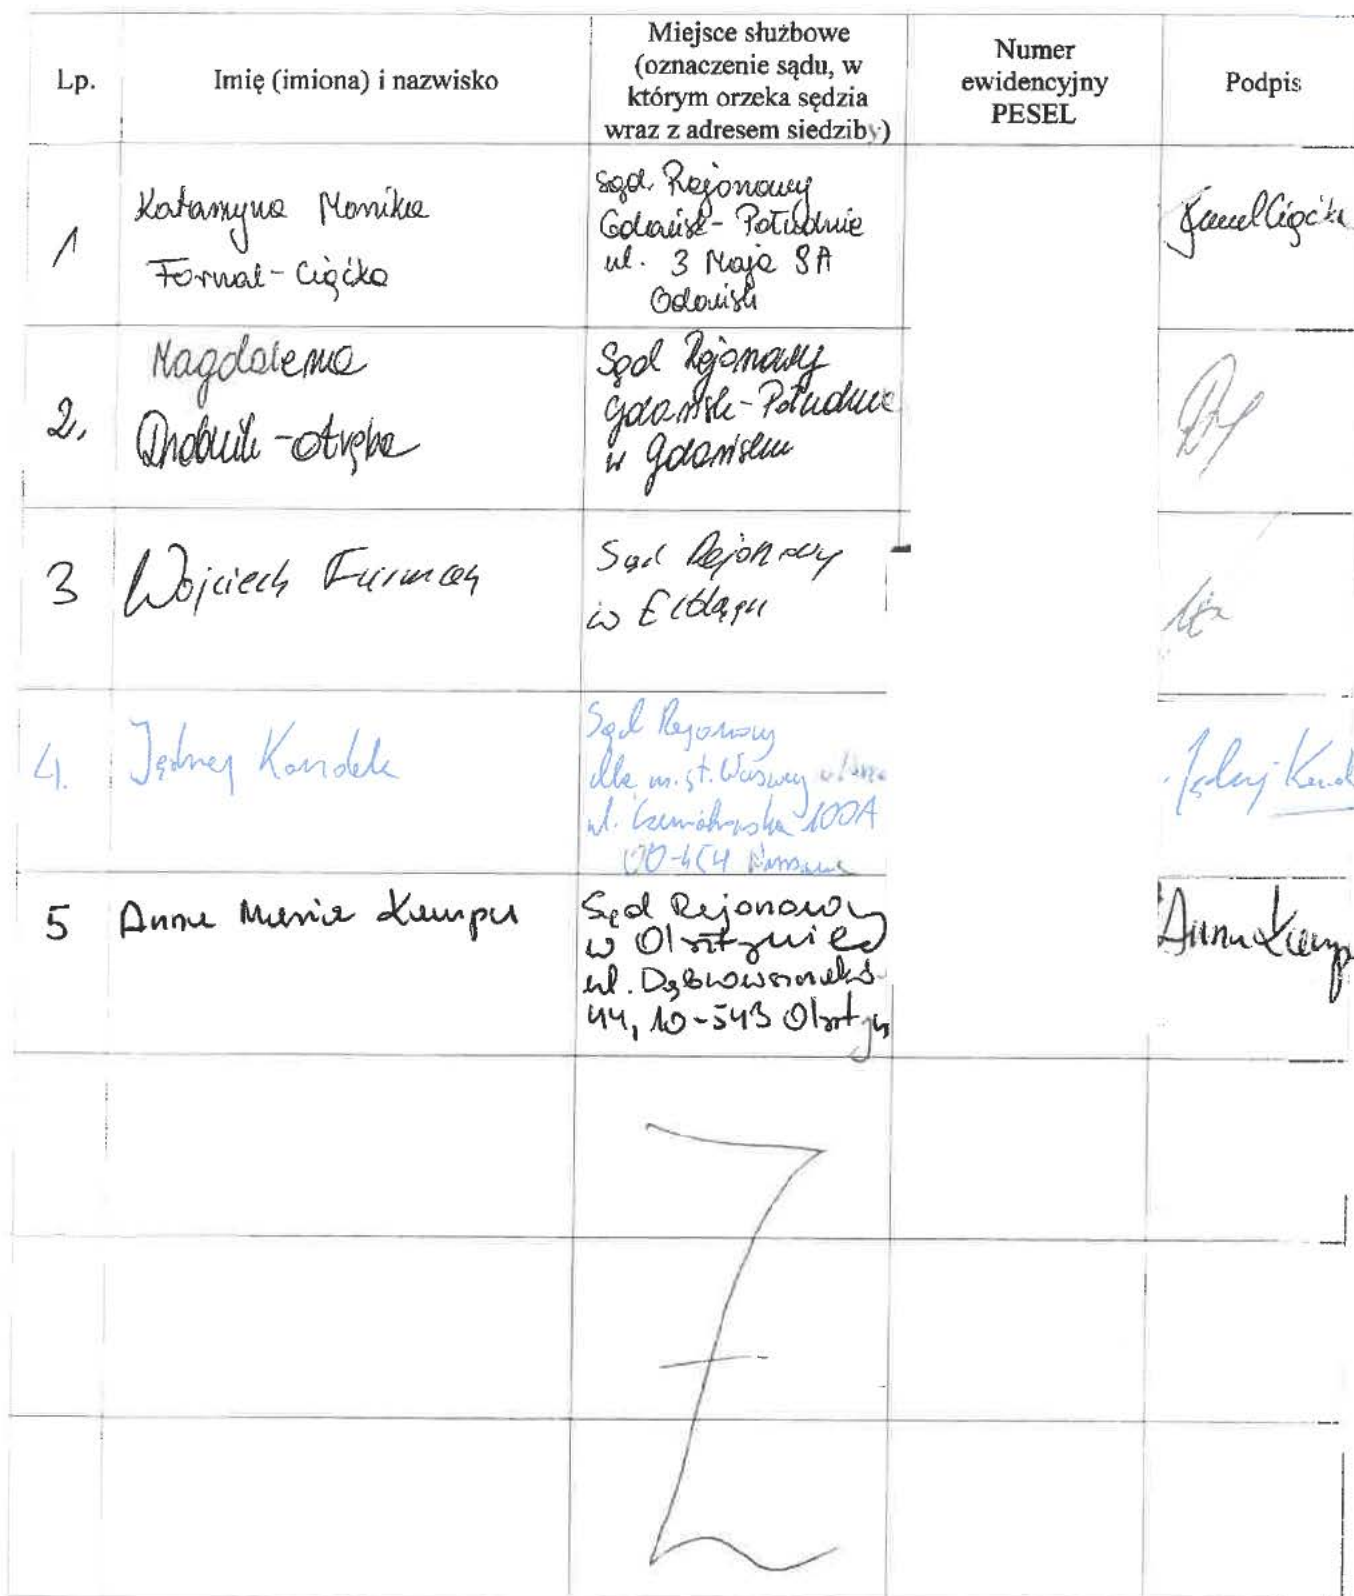 Lp.
Imię (imiona) i nazwisko
Miejsce służbowe
(oznaczenie sądu, w
którym orzeka sędzia
wraz z adresem siedziby)
Numer
ewidencyjny
PESEL
Podpis
1
Katarzyna Monika
Formal-Ciąćka
Sąd Rejonowy
Gdańsk-Południe
ul. 3 Maja 9A
Gdańsk
2.
Magdalena
-Otręba
Sąd Rejonowy
Gdańsk-Południe
w Gdańsku
3
Wojciech Furman
Sąd Rejonowy
w Elblągu
4.
Jędrzej Kondek
Sąd Rejonowy
dla m.st. Warszawy
ul. Czerniakowska 100A
00-454 Warszawa
Jędrzej
5
Anna Maria Kempa
Sąd Rejonowy
w Olsztynie
ul. Dąbrowszczaków
44, 10-543 Olsztyn
Anna Kemp